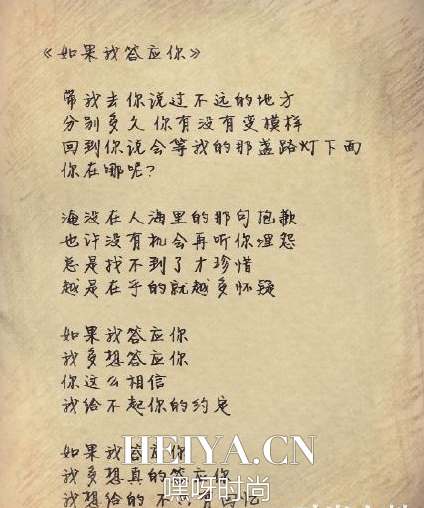 《如果我答应你》
带我去你说过不远的地方
分别多久 你有没有变模样
回到你说会等我的那盏路灯下面
你在哪呢?
淹没在人海里的那句抱歉
也许没有机会再听你埋怨
总是找不到了才珍惜
越是在乎的就越多怀疑
如果我答应你
我多想答应你
你这么相信
我给不起你的约定
如果我答应你
HEIYA.CN
我多想真的答应你
嘿呀时尚
我想给的 不只有回忆